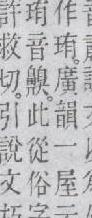 作珛。廣韻一屋
珛音齅。此從俗字
許救切。引說文